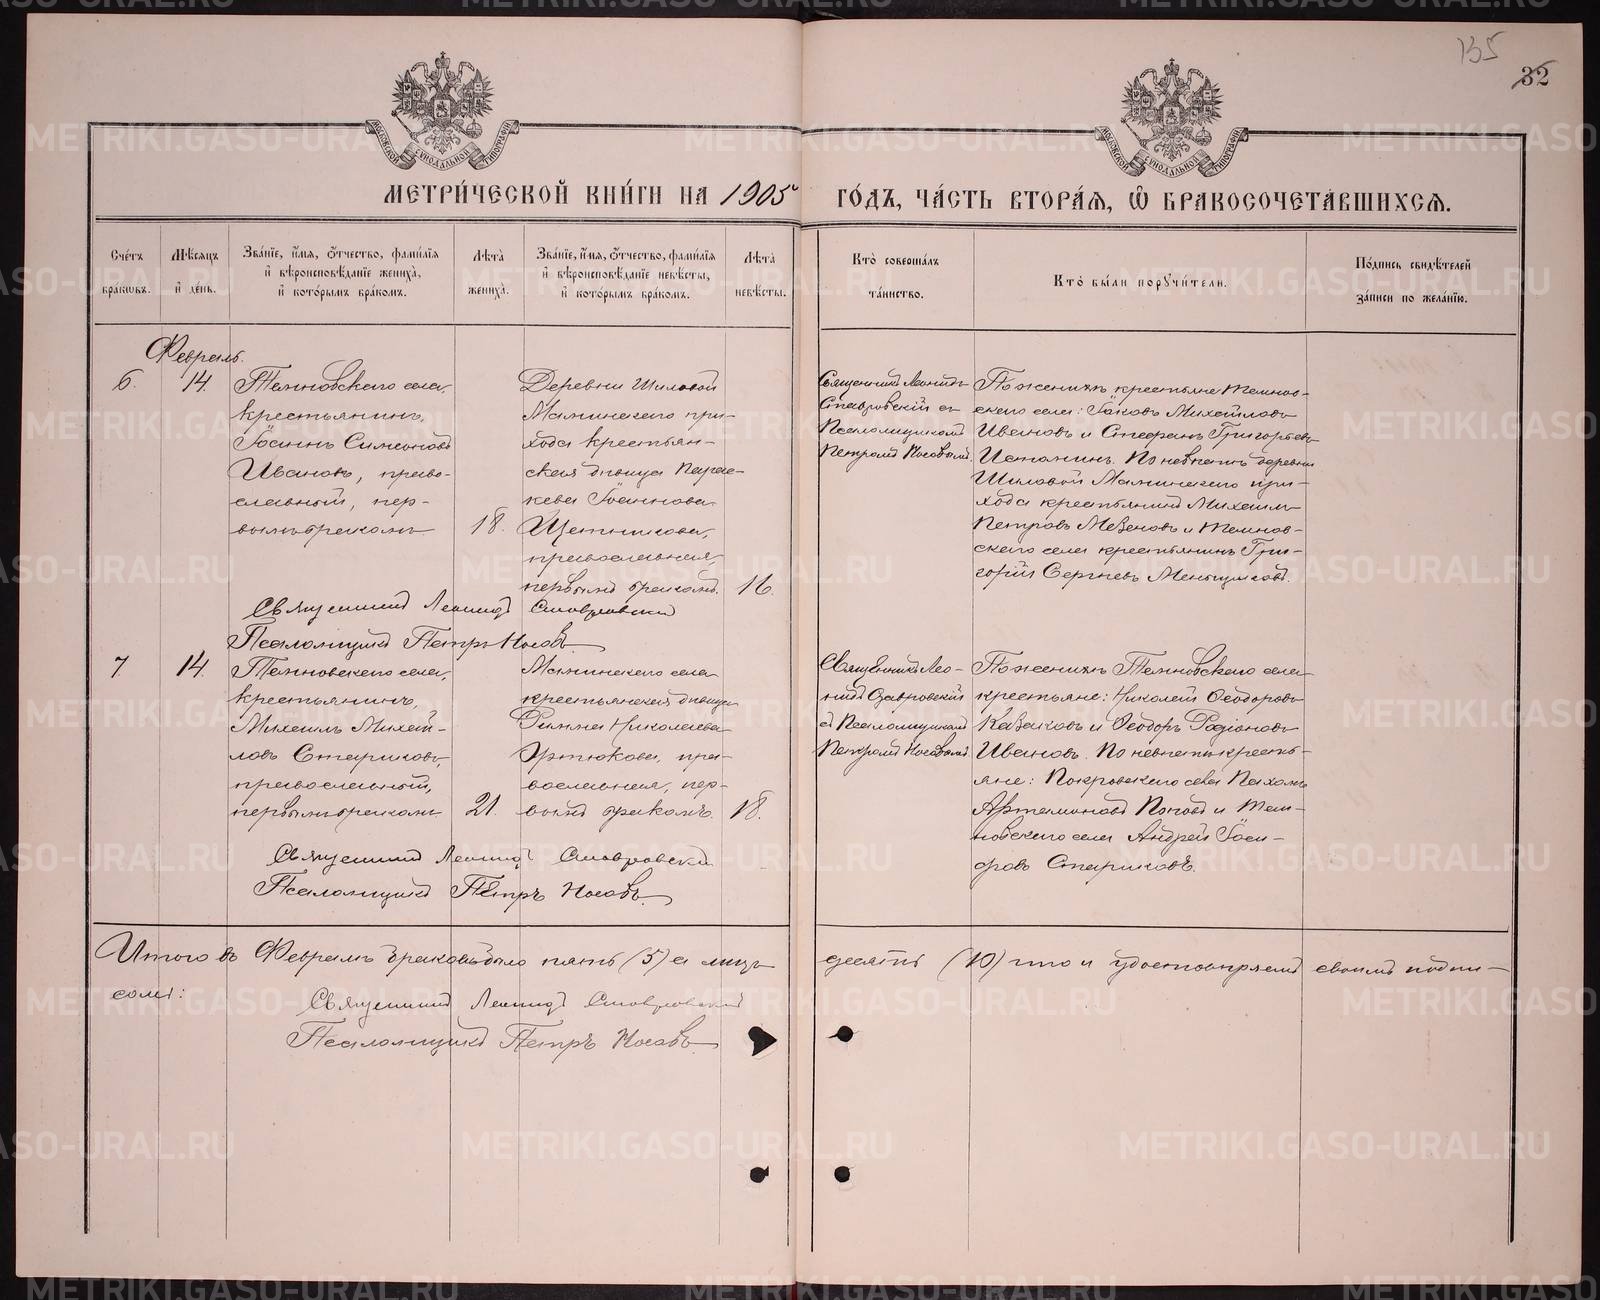 135
32
МОСКОВСКОЙ СѴНОДАЛЬНОЙ ТИПОГРАФІИ
МОСКОВСКОЙ СѴНОДАЛЬНОЙ ТИПОГРАФІИ
МЕТРИ́ЧЕСКОЙ КНИ́ГИ НА 1905 ГО́ДЪ, ЧА́СТЬ ВТОРА́Я, Ѽ БРАКОСОЧЕТА́ВШИХСЯ.
Сче́тъ бра́ковъ.
Мѣ́сяцъ и҆ де́нь.
Зва́нїе, и҆́мя, ѻ҆́тчество, фами́лїя и҆ вѣроисповѣ́данїе жениха̀, и҆ кото́рымъ бра́комъ.
Лѣ́та жениха̀.
Зва́нїе, и҆́мя, ѻ҆́тчество, фами́лїя и҆ вѣроисповѣ́данїе невѣ́сты, и҆ кото́рымъ бра́комъ.
Лѣ́та невѣ́сты.
Кто̀ соверша́лъ та́инство.
Кто̀ бы́ли поручи́тели.
По́дпись свидѣ́телей за́писи по жела́нїю.
Февраль.
6.
14.
Темновскаго села,
крестьянинъ,
Іоаннъ Симеоновъ
Ивановъ, право-
славный, пер-
вымъ бракомъ
18.
Деревни Шиловой
Маминскаго при-
хода крестьян-
ская дѣвица Парас-
кева Іоаннова
Щетникова,
православная,
первымъ бракомъ.
16.
Священникъ Леонидъ
Ставровскій съ
Псаломщикомъ
Петромъ Носовымъ.
По женихѣ крестьяне Темнов-
скаго села: Іаковъ Михайловъ
Ивановъ и Стефанъ Григорьевъ
Истоминъ. По невѣстѣ деревни
Шиловой Маминскаго при-
хода крестьянинъ Михаилъ
Петровъ Мезеновъ и Темнов-
скаго села крестьянинъ Гри-
горій Сергѣевъ Меньшиковъ.
Священникъ Леонидъ Ставровскій
Псаломщикъ Петръ Носовъ
7
14.
Темновскаго села,
крестьянинъ,
Михаилъ Михай-
ловъ Стариковъ,
православный,
первымъ бракомъ
21.
Маминскаго села
крестьянская дѣвица
Римма Николаева
Уртюкова, пра-
вославная, пер-
вымъ бракомъ.
18.
Священникъ Лео-
нидъ Ставровскій
съ Псаломщикомъ
Петромъ Носовымъ
По женихѣ Темновскаго села
крестьяне: Николай Ѳеодоровъ
Казаковъ и Ѳеодоръ Родіоновъ
Ивановъ. По невѣстѣ кресть-
яне: Покровскаго села Пахомъ
Артамоновъ Поповъ и Тем-
новскаго села Андрей Іоси-
фовъ Стариковъ.
Священникъ Леонидъ Ставровскій
Псаломщикъ Петръ Носовъ.
Итого въ Февралѣ браковъ было пять (5) а лицъ десять (10) что и удостовѣряемъ своимъ подпи-
сомъ:
Священникъ Леонидъ Ставровскій
Псаломщикъ Петръ Носовъ
METRIKI.GASO-URAL.RU